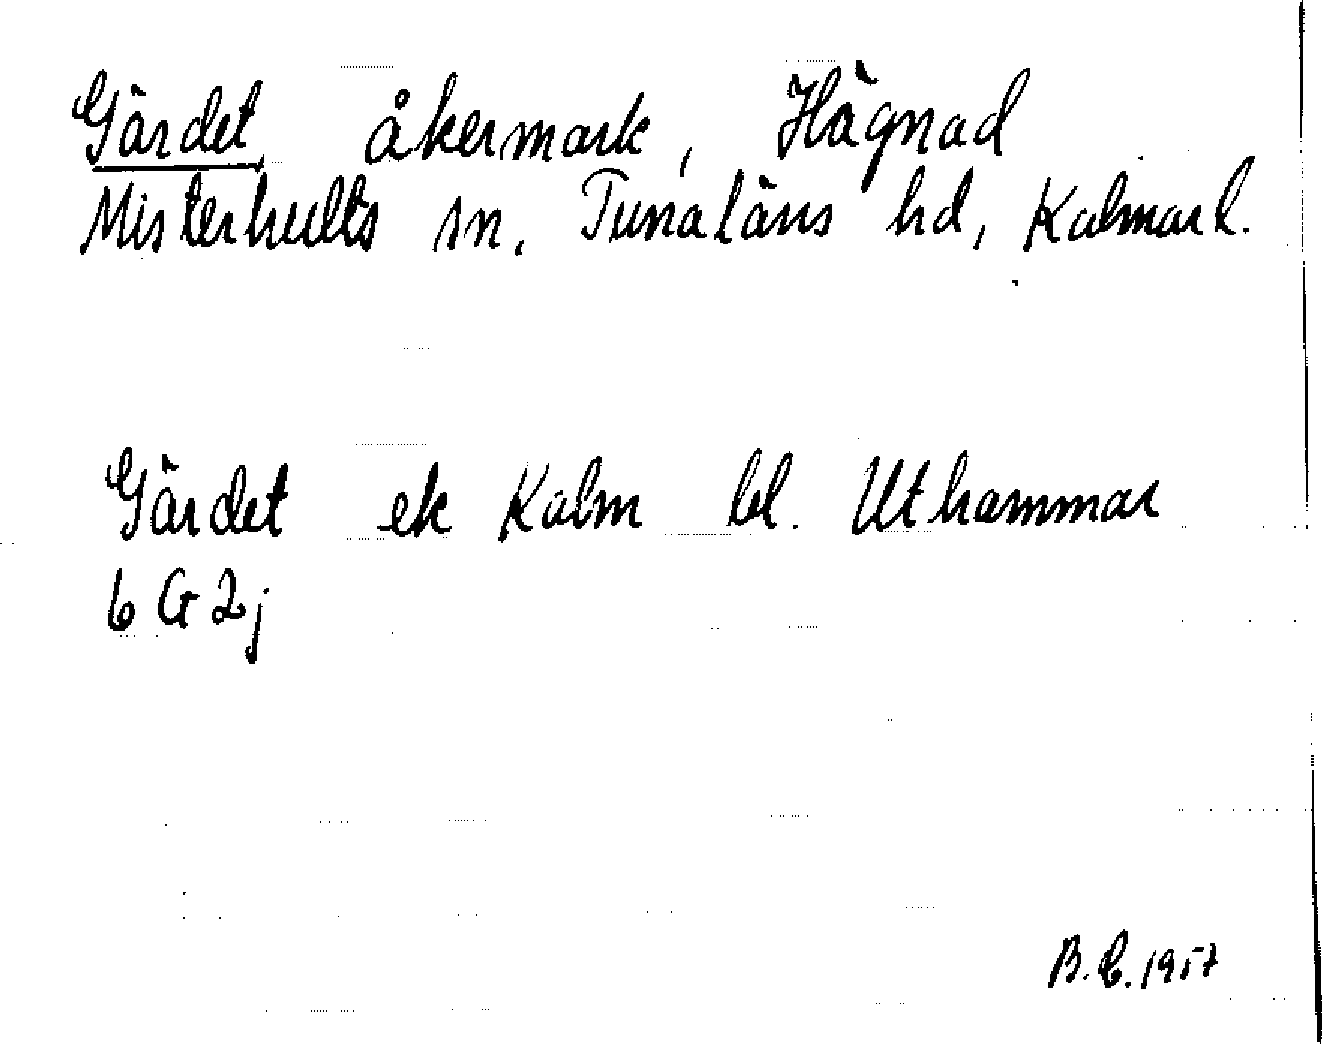 Gärdet, åkermark, Hägnad
Misterhults sn, Tunaläns hd, Kalmar l.
Gärdet ek Kalm bl. Uthammar
6 G 2j
B.C. 1957